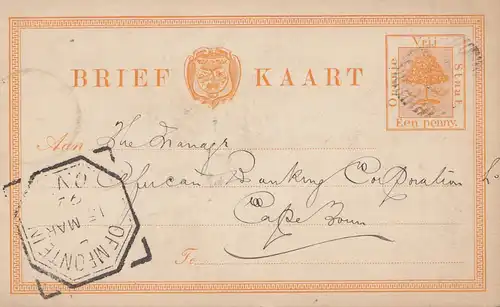 BRIEF KAART
Oranje Vrij Staat.
Een penny.
Aan The Manager
African Banking Corporation
Cape Town
Te
OFNFONTEIN
15 MAR
O.V.